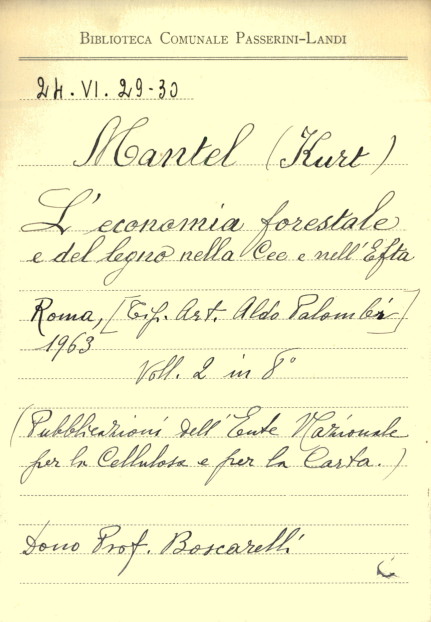 BIBLIOTECA COMUNALE PASSERINI-LANDI
2H.VI.29-30
Mantel (Kurt)
L'economia forestale
e del legno nella Cee e nell'Efta
Roma, [Tip. Art. Aldo Palombi]
1963
Voll. 2 in 8°
(Pubblicazioni dell'Ente Nazionale
per la Cellulosa e per la Carta.)
Dono Prof. Boscarelli